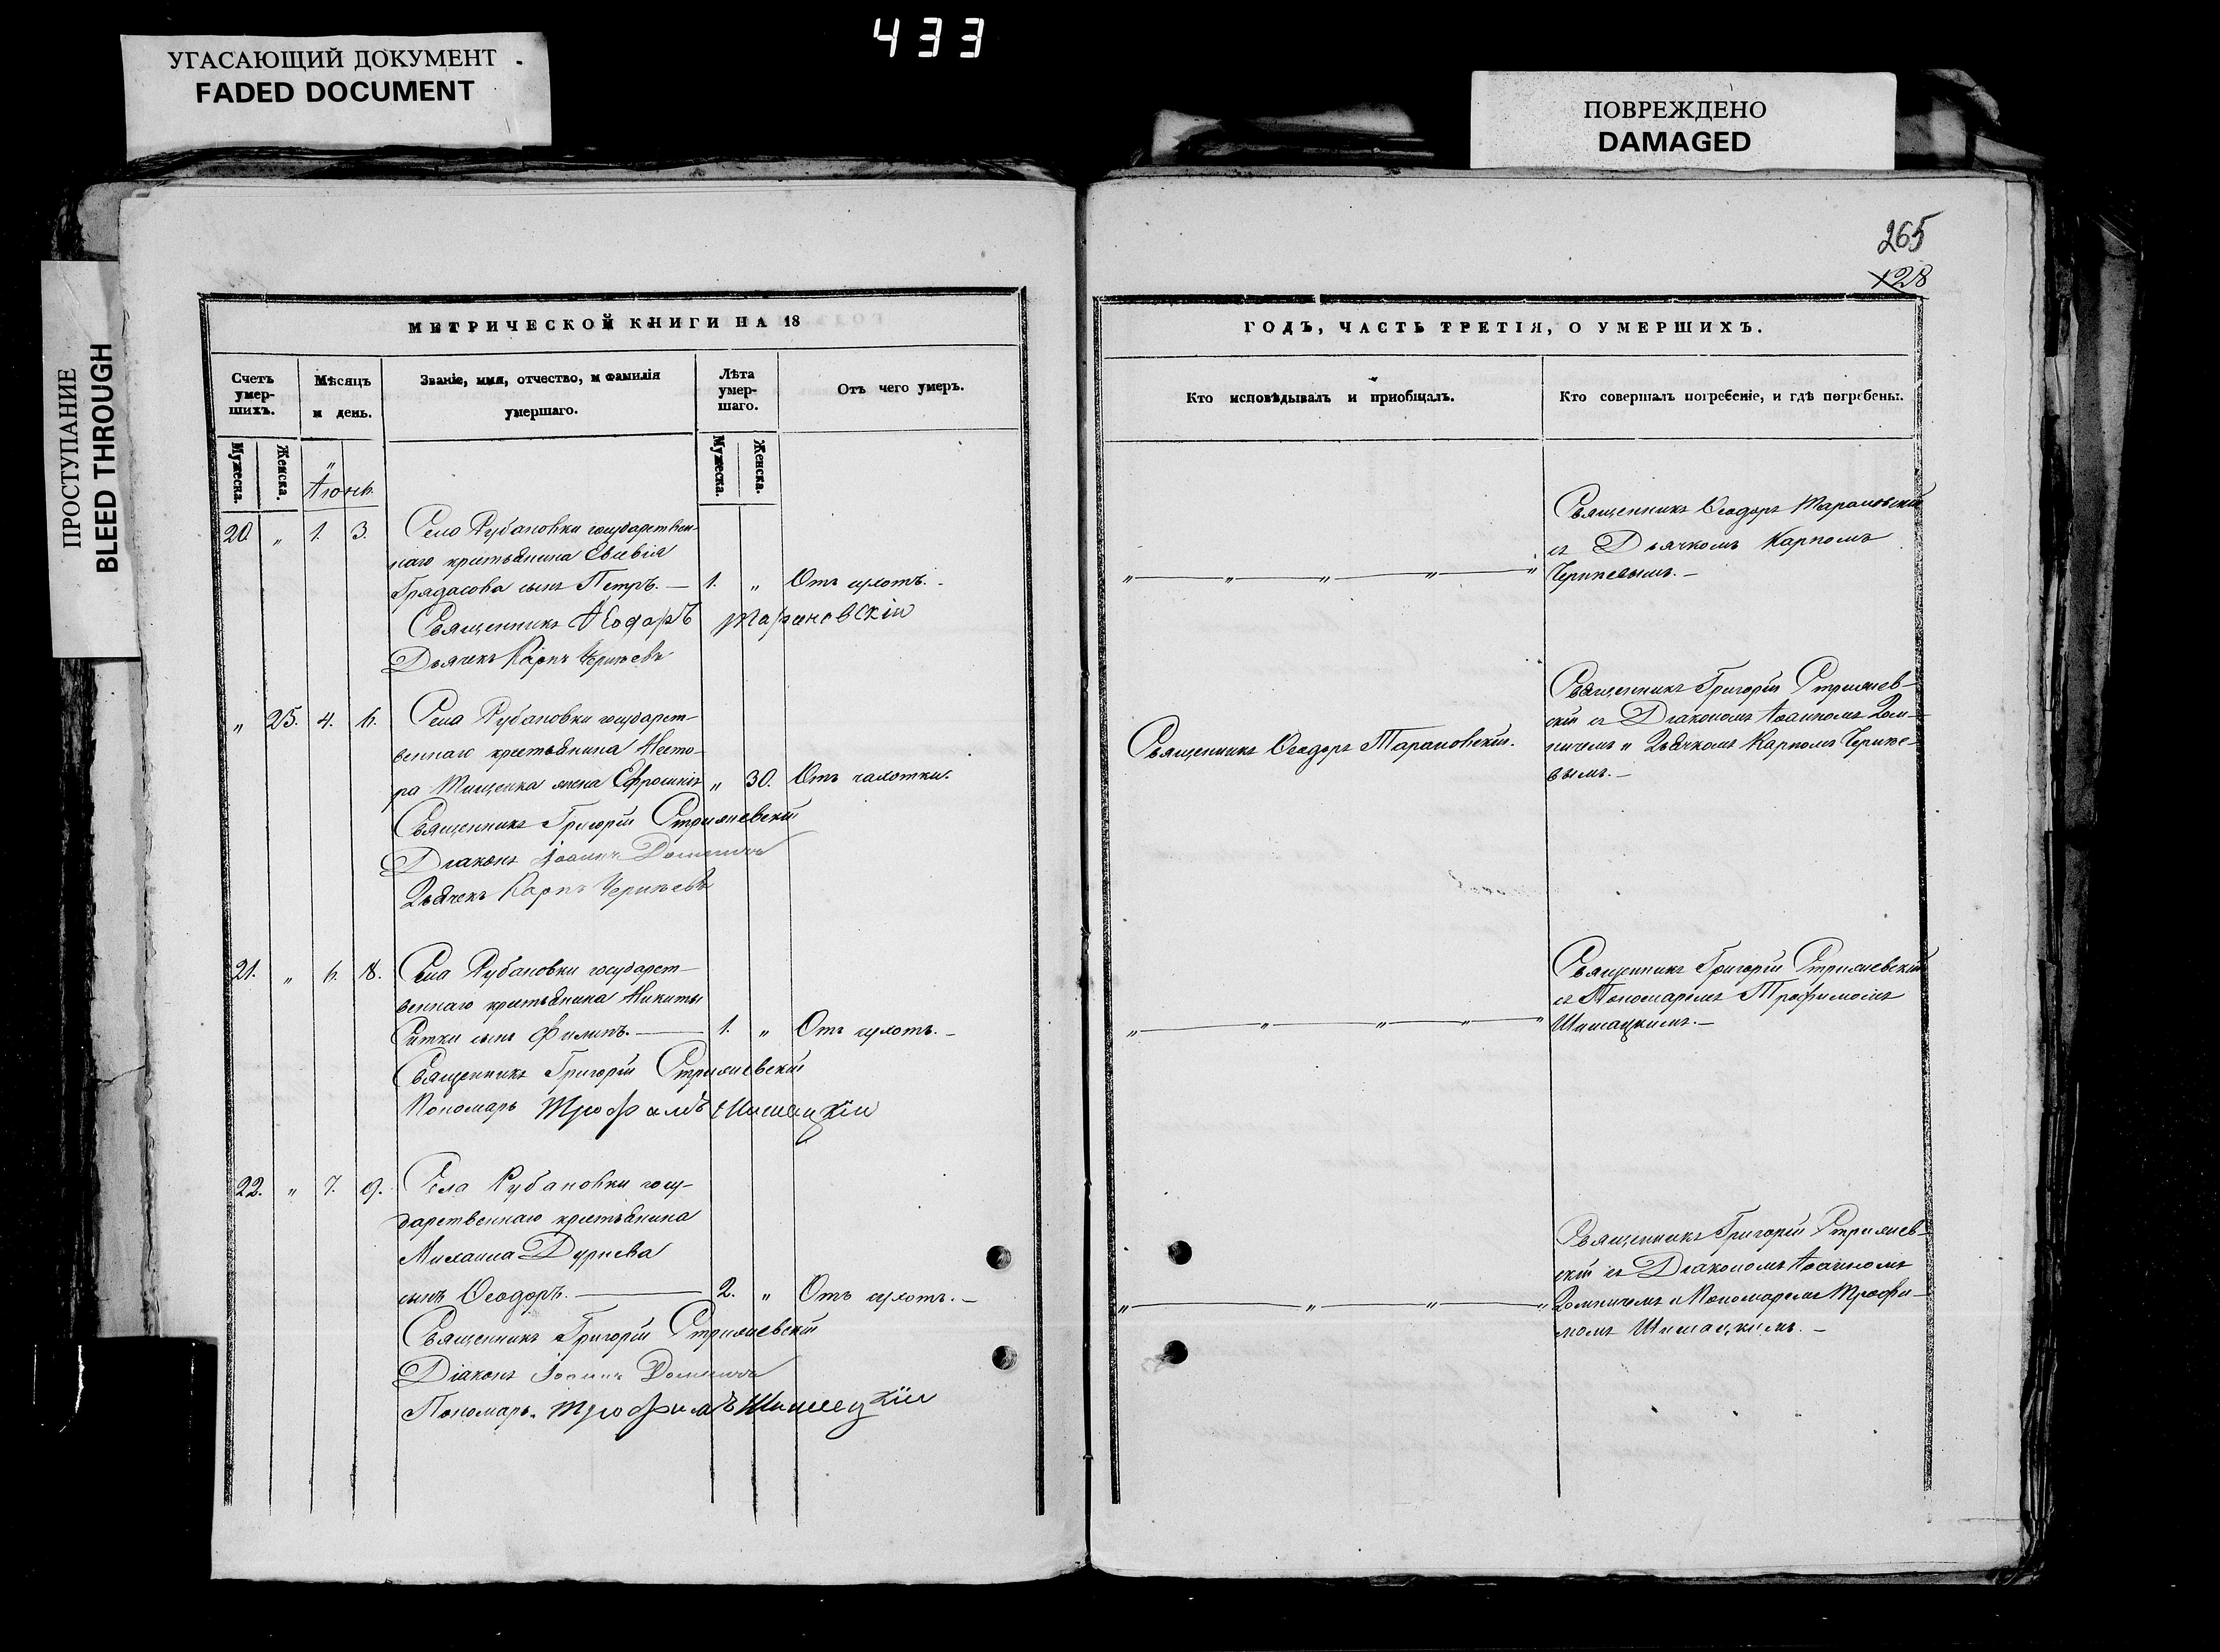 433
УГАСАЮЩИЙ ДОКУМЕНТ
FADED DOCUMENT
ПОВРЕЖДЕНО
DAMAGED
ПРОСТУПАНИЕ
BLEED THROUGH
МЕТРИЧЕСКОЙ КНИГИ НА 18
Счетъ умер-шихъ.
Мѣсяцъ и день.
Званіе, имя, отчество, и фамилія умершаго.
Лѣта умер-шаго.
Отъ чего умеръ.
Мужеска.
Женска.
Мужеска.
Женска.
Іюнь
20. " 1. 3. Села Рубановки государствен-
наго крестьянина Евсевія
сынъ Петръ. — 1. " Отъ
Священникъ Ѳеодоръ Тарановскій
Дьячекъ Карпъ
" 25. 4. 6. Села Рубановки государст-
веннаго крестьянина Несто-
ра Тищенка жена Ефросинія " 30. Отъ чахотки.
Священникъ Григорій Стрижевскій
Діаконъ Іоаннъ
Дьячекъ Карпъ
21. " 6. 8. Села Рубановки государст-
веннаго крестьянина Никиты
сынъ Филипъ. — 1. " Отъ
Священникъ Григорій Стрижевскій
Пономарь Трофимъ Шишацкій
22. " 7. 9. Села Рубановки госу-
дарственнаго крестьянина
Михаила Дурнева
сынъ Ѳеодоръ. — 2. " Отъ
Священникъ Григорій Стрижевскій
Діаконъ Іоаннъ
Пономарь Трофимъ Шишацкій
265
128
ГОДЪ, ЧАСТЬ ТРЕТІЯ, О УМЕРШИХЪ.
Кто исповѣдывалъ и пріобщалъ.
Кто совершалъ погребеніе, и гдѣ погребены.
Священникъ Ѳеодоръ Тарановскій
съ Дьячкомъ Карпомъ
" — " — " — " — "
Священникъ Григорій Стрижев-
скій съ Діакономъ Іоанномъ
Священникъ Ѳеодоръ Тарановскій.
и Дьячкомъ Карпомъ
вымъ. —
Священникъ Григорій Стрижевскій
съ Пономаремъ Трофимомъ
" — " — " — " — " Шишацкимъ. —
Священникъ Григорій Стрижев-
скій съ Діакономъ Іоанномъ
" — " — " — " и Пономаремъ Трофи-
момъ Шишацкимъ. —